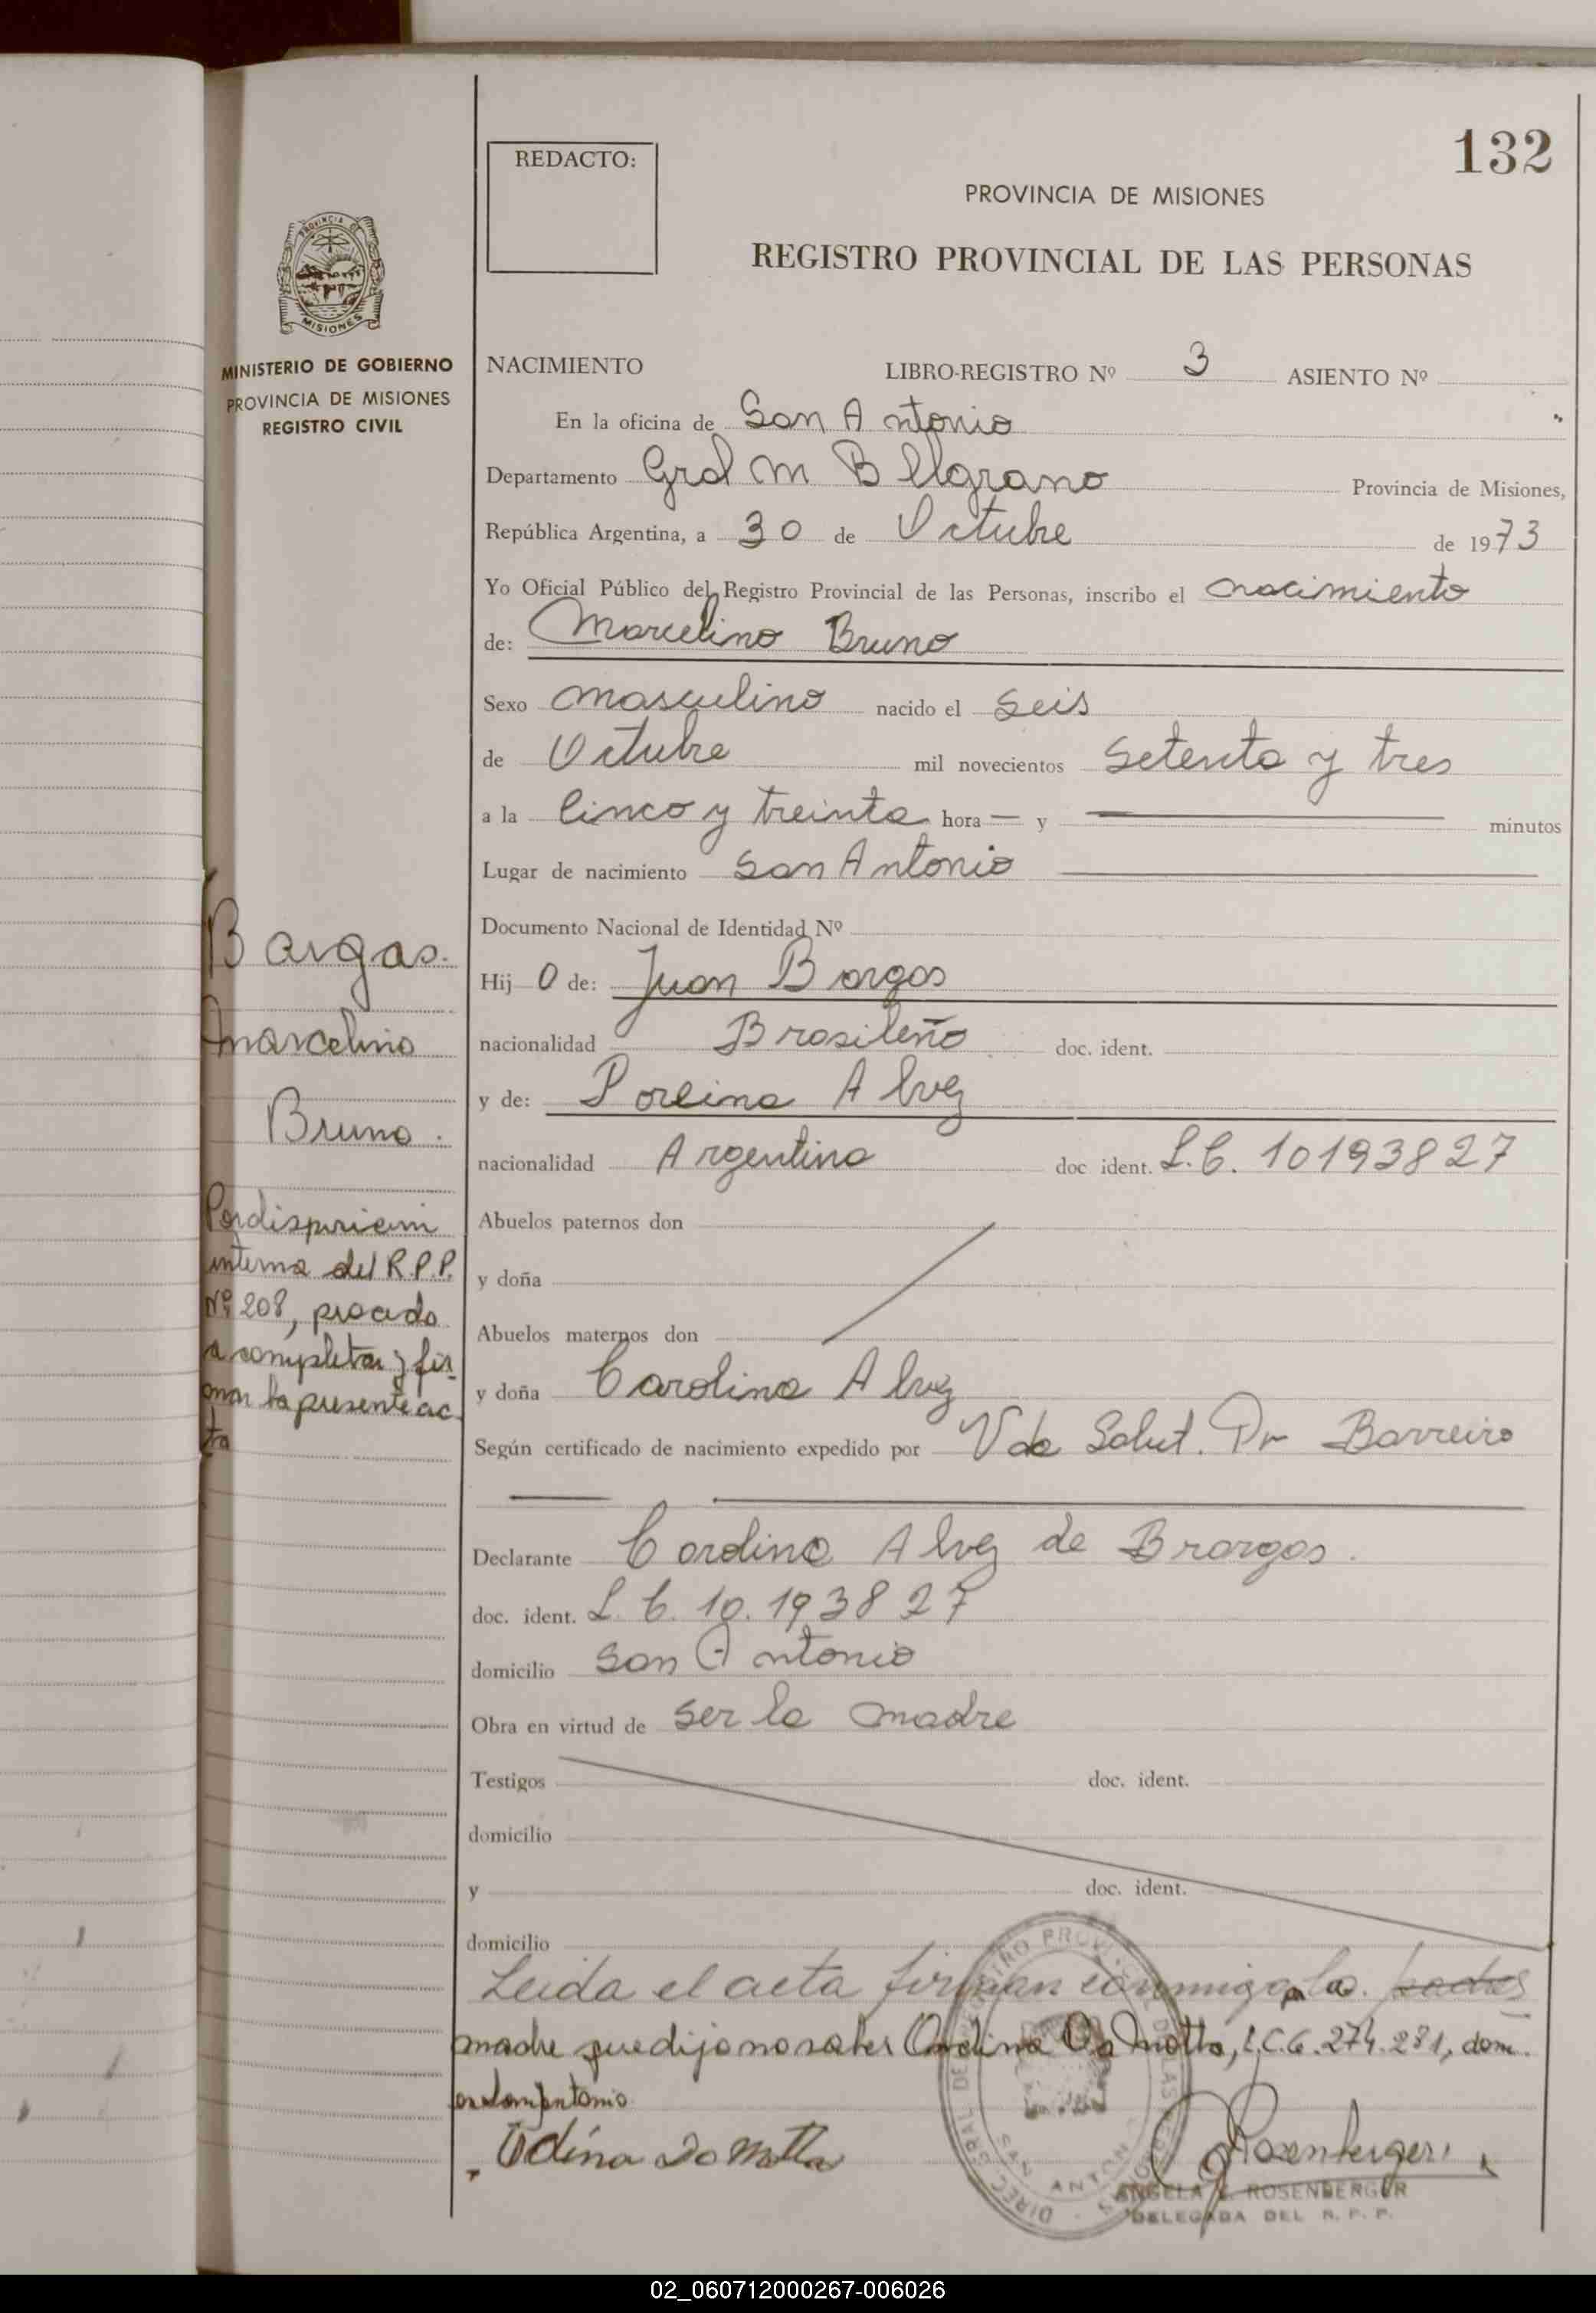 132
REDACTO:
PROVINCIA DE MISIONES
REGISTRO PROVINCIAL DE LAS PERSONAS
PROVINCIA DE
MISIONES
MINISTERIO DE GOBIERNO
PROVINCIA DE MISIONES
REGISTRO CIVIL
NACIMIENTO LIBRO-REGISTRO Nº 3 ASIENTO Nº
En la oficina de San Antonio
Departamento Gral M Belgrano Provincia de Misiones,
República Argentina, a 30 de Octubre de 1973
Yo Oficial Público del Registro Provincial de las Personas, inscribo el nacimiento
de: Marcelino Bruno
Sexo masculino nacido el seis
de Octubre mil novecientos setenta y tres
a la Cinco y treinta hora — y — minutos
Lugar de nacimiento San Antonio
Documento Nacional de Identidad Nº
Hijo de: Juan Bargas
nacionalidad Brasileño doc. ident.
y de: Alvez
nacionalidad Argentina doc ident. L.C. 10193827
Abuelos paternos don
y doña
Abuelos maternos don
y doña Carolina Alvez
Según certificado de nacimiento expedido por Salut. Dr Barreiro
Declarante Alvez de
doc. ident. L.C. 10.193827
domicilio San Antonio
Obra en virtud de ser la madre
Testigos doc. ident.
domicilio
y doc. ident.
domicilio
Leida el acta firman conmigo la
madre que dijo no saber Da Motta, L.C. 6.274.281, dom.
en San Antonio
Odina Da Motta
Rosenberger
ANGELA ROSENBERGER
DELEGADA DEL R. P. P.
Bargas.
Marcelino
Bruno.
Por disposicion
interna del R.P.P.
Nº 208, procedo
a completar y fir-
mar la presente ac-
ta
02_060712000267-006026